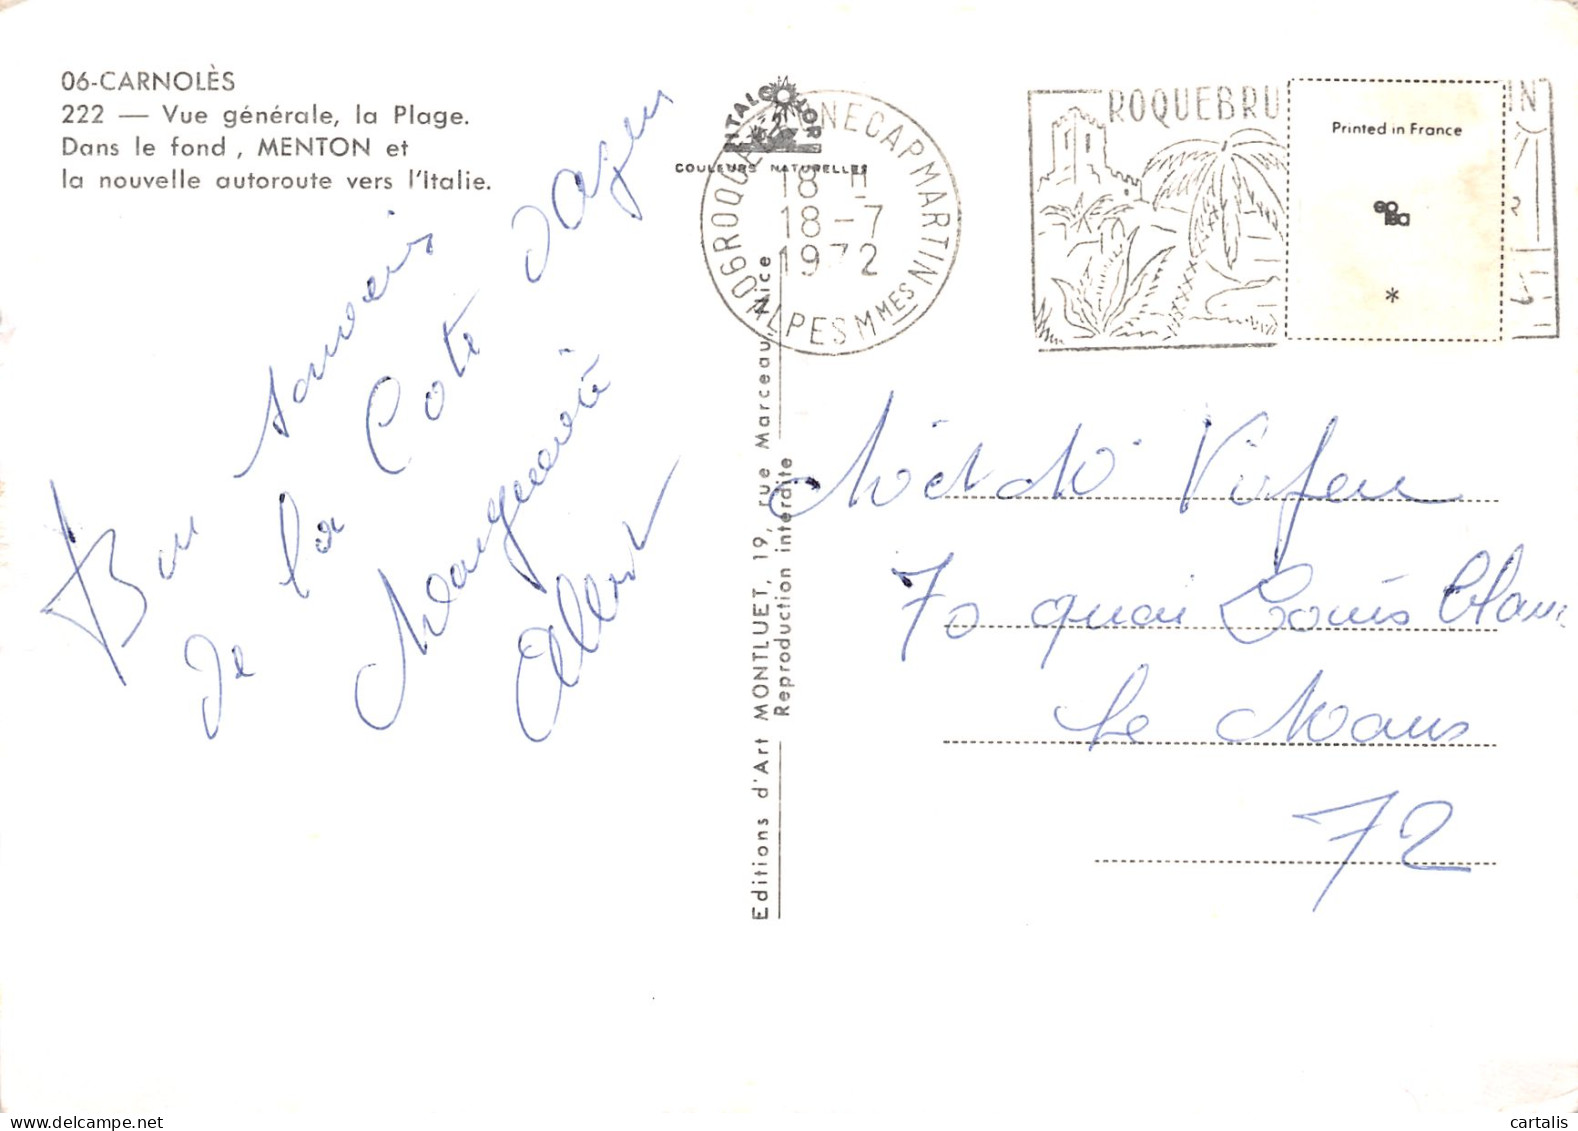 06-CARNOLÈS
222 — Vue générale, la Plage.
Dans le fond, MENTON et
la nouvelle autoroute vers l'Italie.
Bon souvenir
de la Cote d'azur
Marguerite
Albert
COULEURS NATURELLES
06 ROQUEBRUNE CAP MARTIN
ALPES MMES
18 H
18-7
1972
ROQUEBRU
IN
Printed in France
*
Editions d'Art MONTLUET, 19, rue Marceau, Nice
Reproduction interdite
70 quai Louis Blanc
Le Mans
72
cartalis